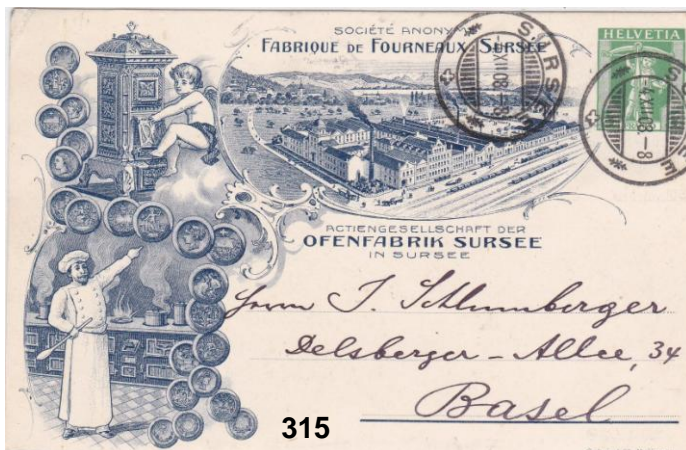 SOCIÉTÉ ANONYM
FABRIQUE DE FOURNEAUX SURSEE
HELVETIA
SURSEE
-4.XII.08.-8
SURSEE
-4.XII.08.-8
ACTIENGESELLSCHAFT DER
OFENFABRIK SURSEE
IN SURSEE
Herrn J. Schlumberger
Delsberger-Allee, 34
Basel
315